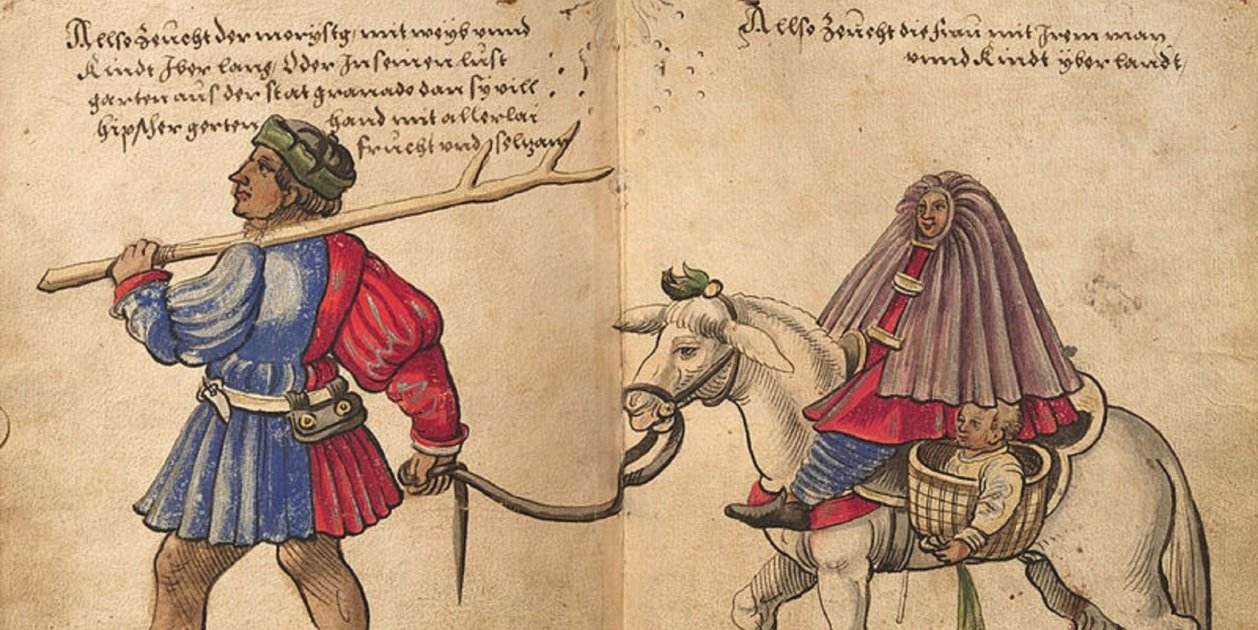 Allso zeücht der morysty, mit weyb vnnd
Kindt Jber lang, Oder Jn seinen lust
garten aüs der stat granado dan sy vill
hipscher gerten hand mit allerlai
frücht vnd selzam
Allso zeücht die fraü mit Jrem man
vnnd Kindt yber landt,